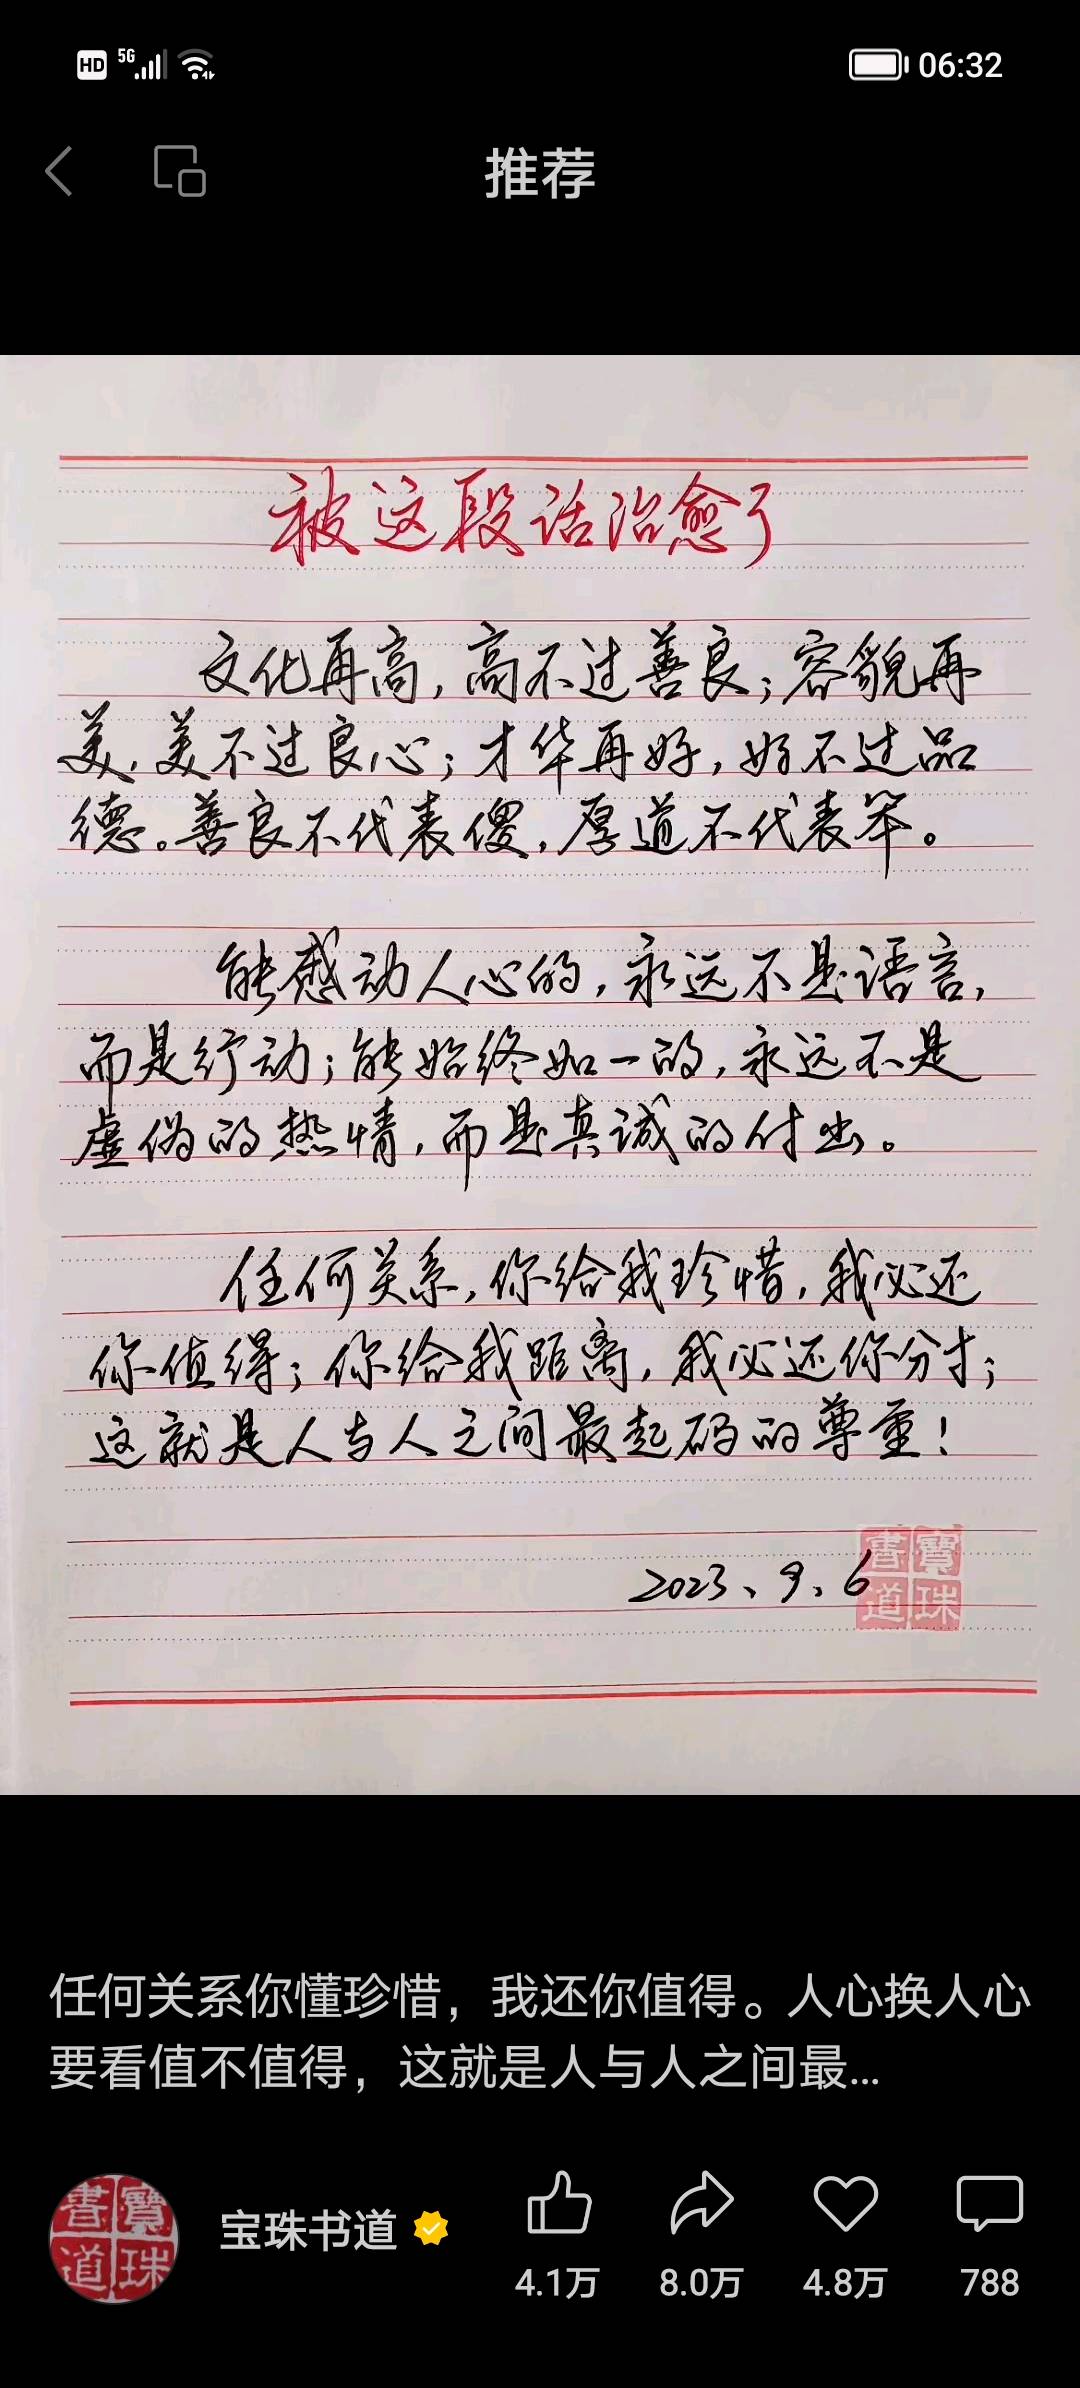 HD 5G 06:32
推荐
被这段话治愈了
文化再高,高不过善良;容貌再
美,美不过良心;才华再好,好不过品
德。善良不代表傻,厚道不代表笨。
能感动人心的,永远不是语言,
而是行动;能始终如一的,永远不是
虚伪的热情,而是真诚的付出。
任何关系,你给我珍惜,我必还
你值得;你给我距离,我必还你分寸;
这就是人与人之间最起码的尊重!
2023、9、6
寶珠書道
任何关系你懂珍惜，我还你值得。人心换人心
要看值不值得，这就是人与人之间最...
寶珠書道
宝珠书道
4.1万 8.0万 4.8万 788